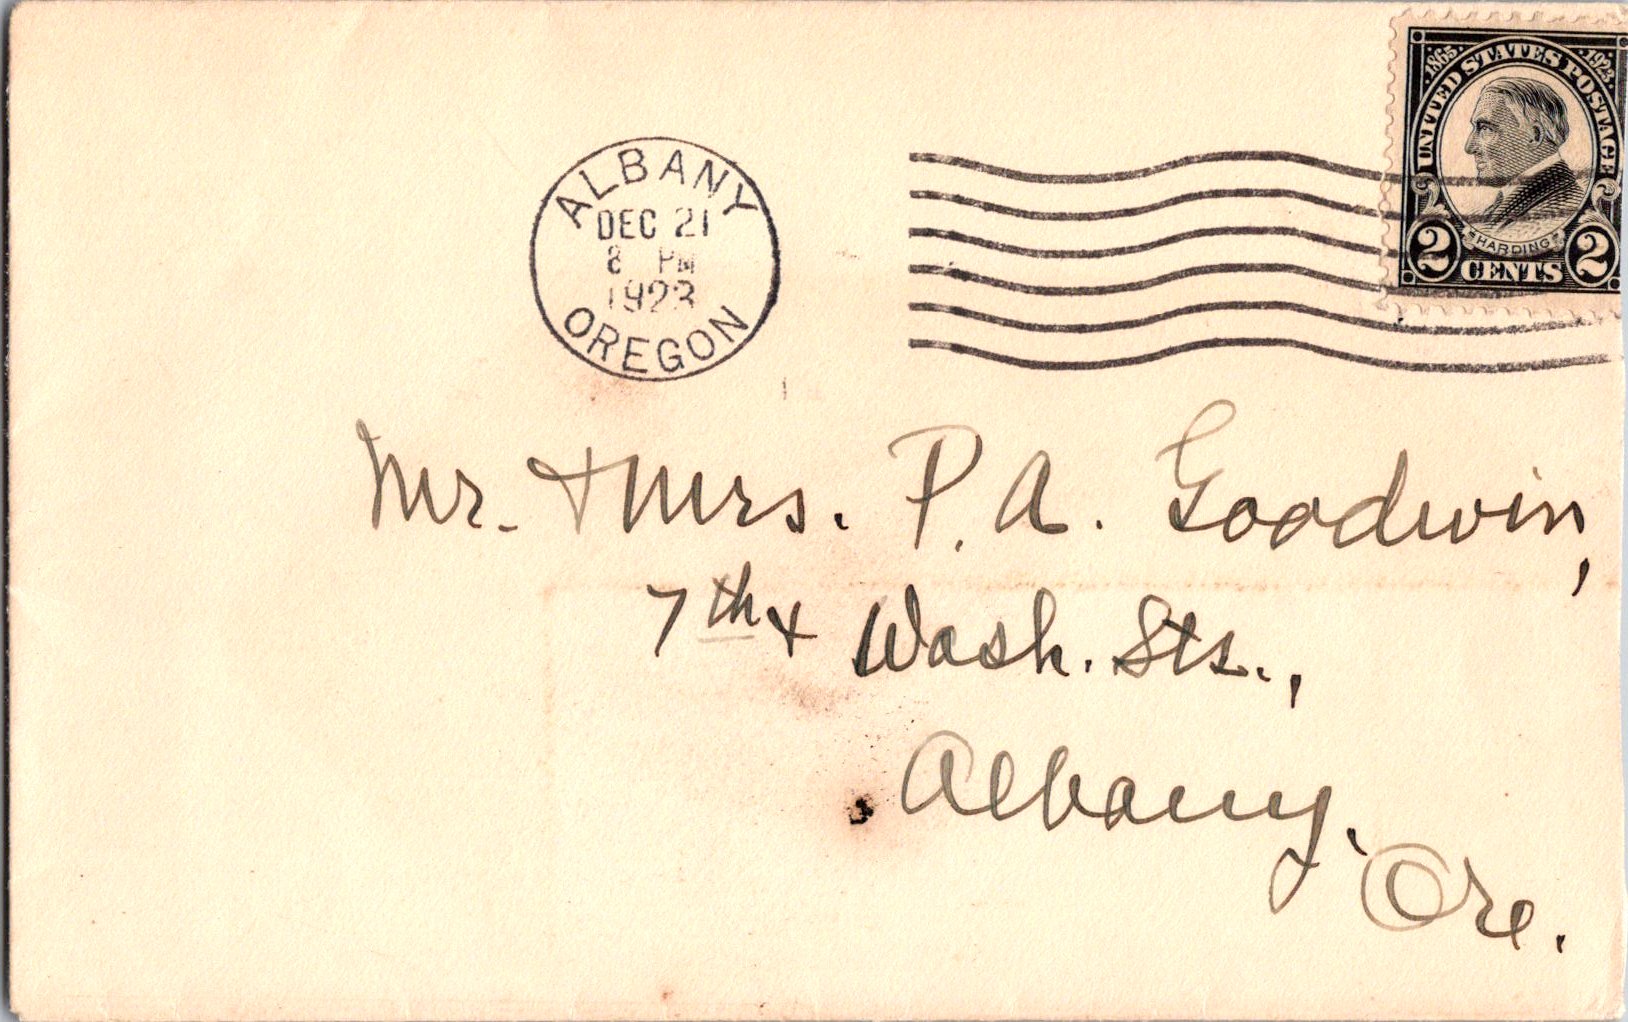 ALBANY
DEC 21
8 PM
1923
OREGON
1865 1923
UNITED STATES POSTAGE
HARDING
2 CENTS 2
Mr. & Mrs. P. A. Goodwin,
7th & Wash. Sts.,
Albany,
Ore.